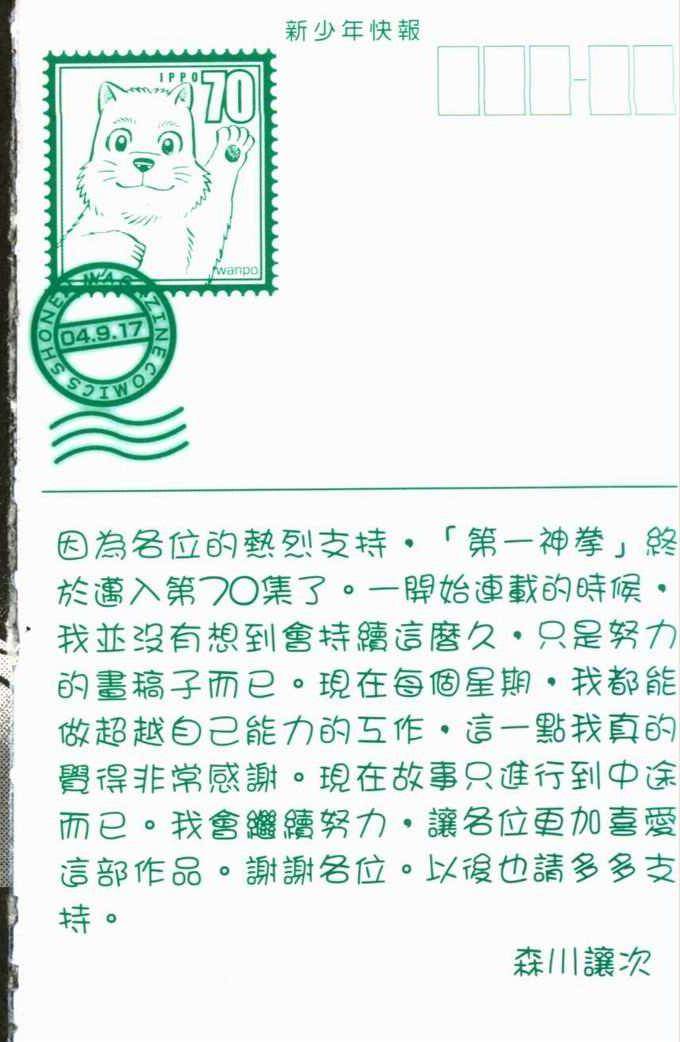 新少年快報
IPPO 70
wanpo
SHONEN MAGAZINE COMICS
04.9.17
因為各位的熱烈支持，「第一神拳」終
於邁入第70集了。一開始連載的時候，
我並沒有想到會持續這麼久，只是努力
的畫稿子而已。現在每個星期，我都能
做超越自己能力的工作，這一點我真的
覺得非常感謝。現在故事只進行到中途
而已。我會繼續努力，讓各位更加喜愛
這部作品。謝謝各位。以後也請多多支
持。
森川讓次